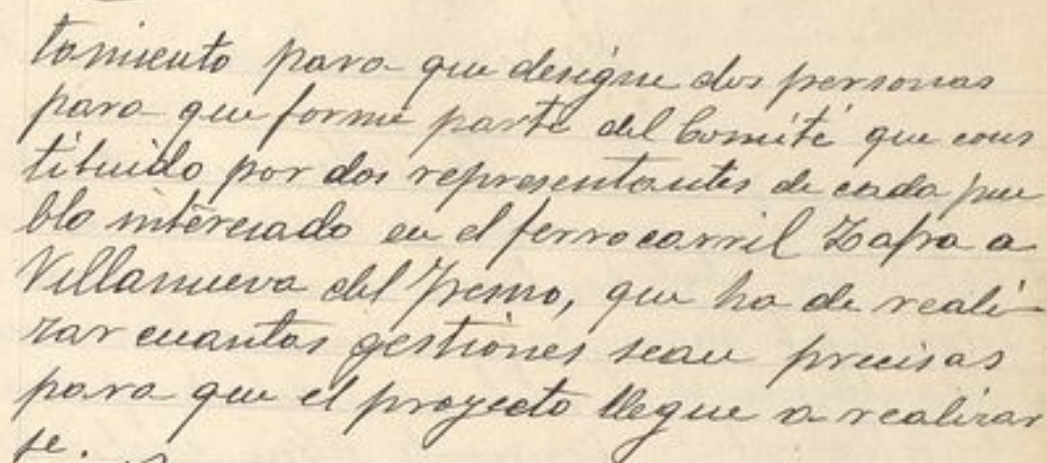 tamiento para que designe dos personas
para que forme parte del Comité que cons
tituido por dos representantes de cada pue
blo interesado en el ferrocarril Zafra a
Villanueva del Fresno, que ha de reali-
zar cuantas gestiones sean precisas
para que el proyecto llegue a realizar
se.